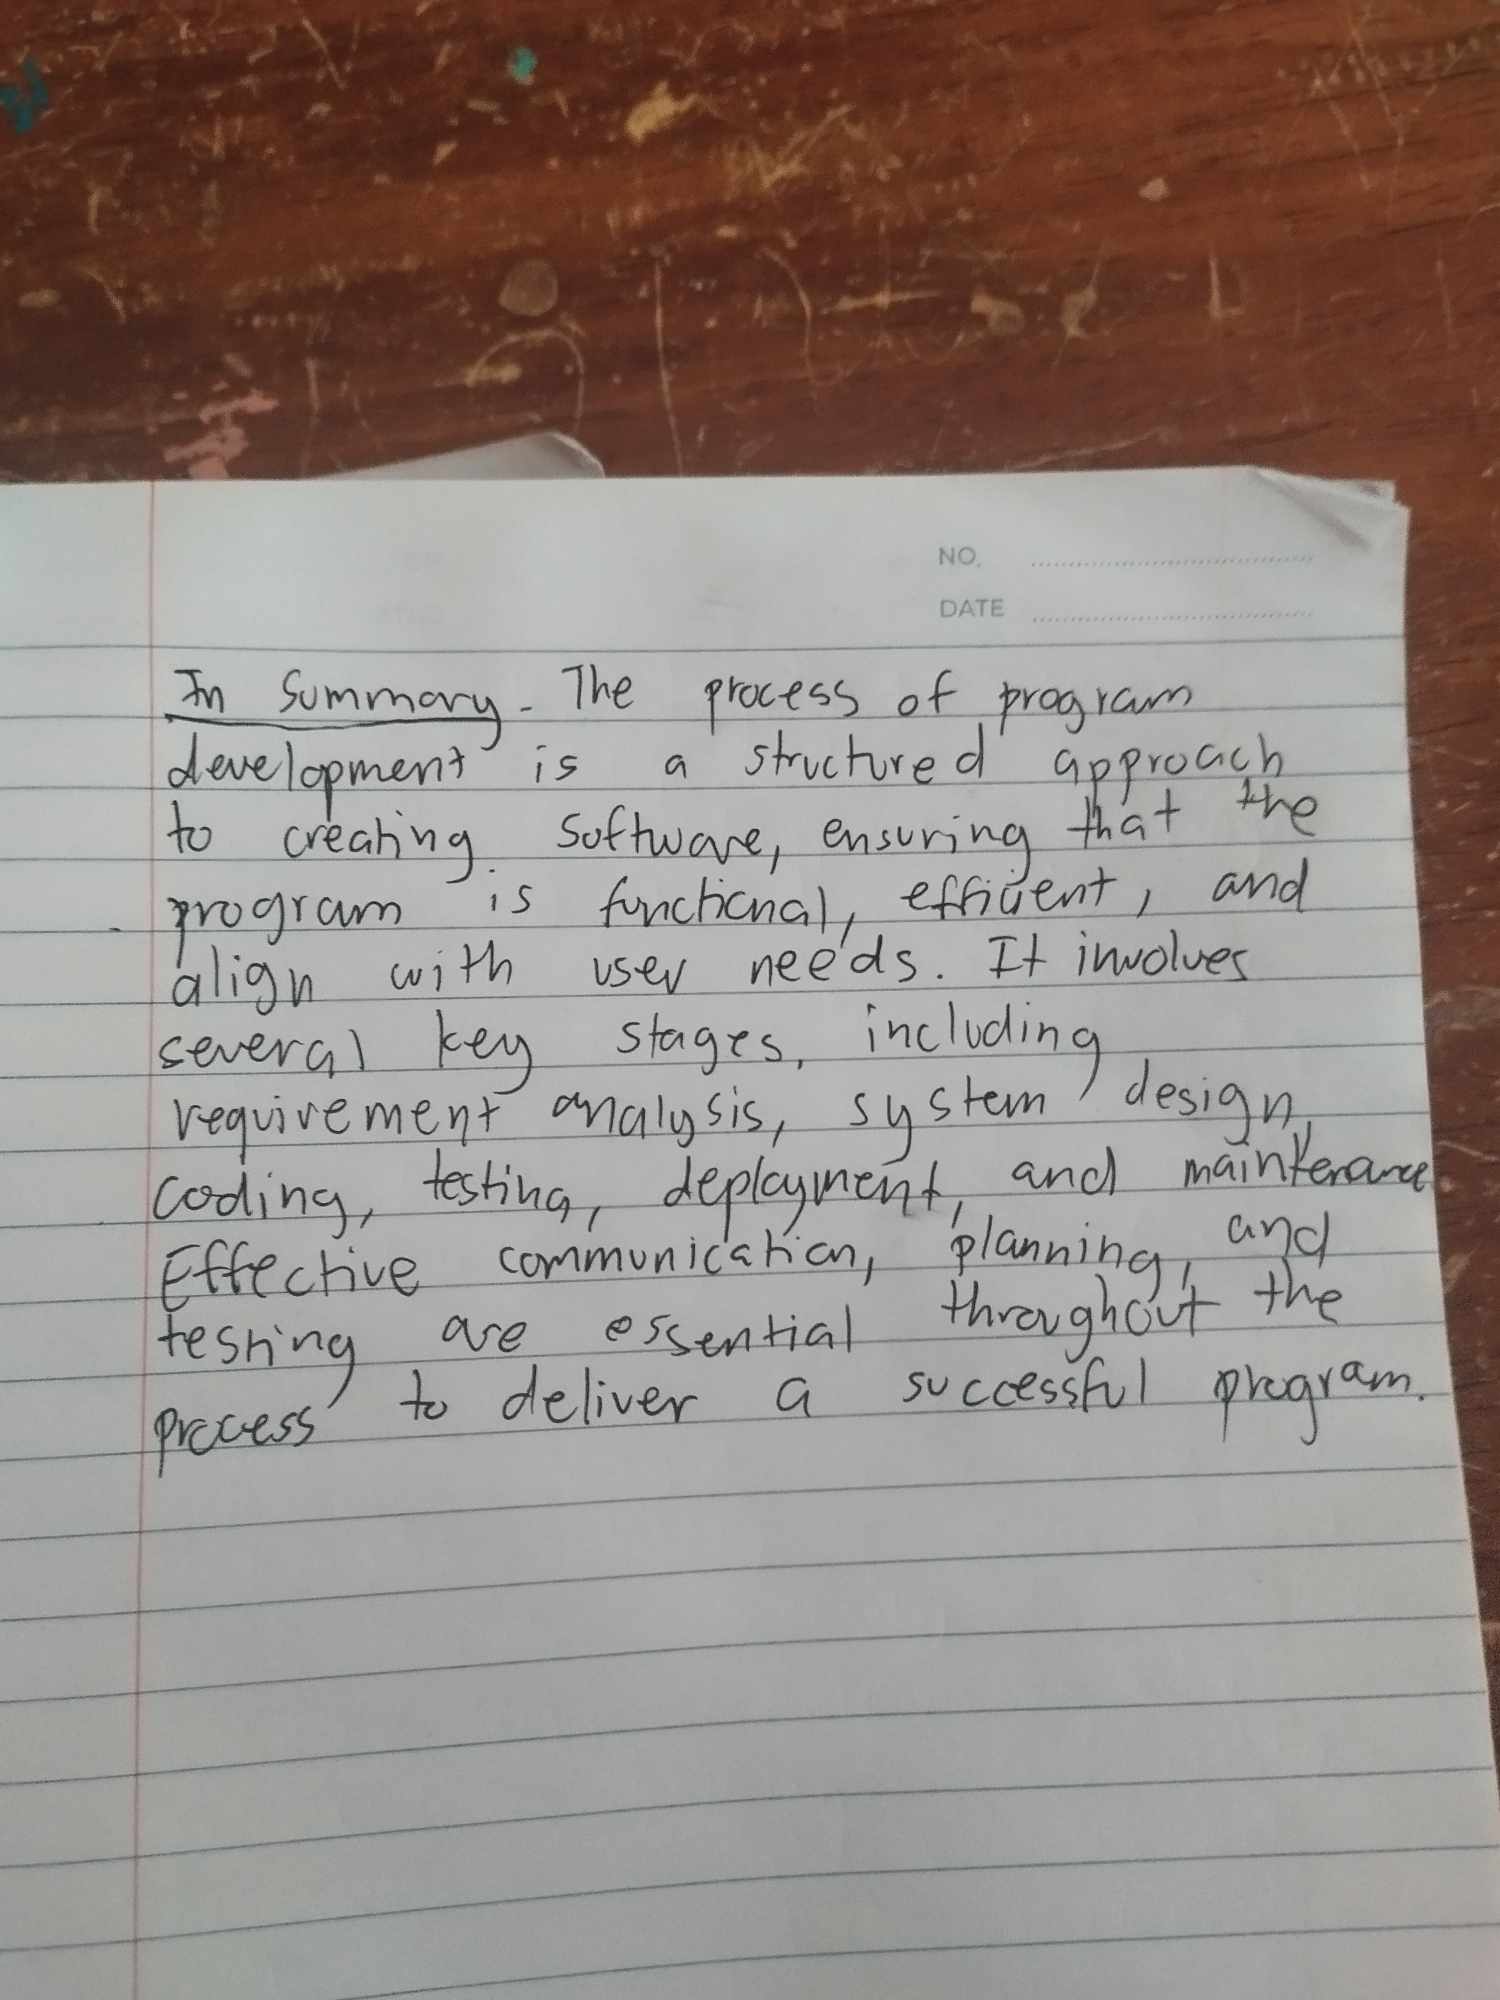 NO.
DATE
In Summary - The process of program
development is a structured approach
to creating software, ensuring that the
program is functional, efficient, and
align with user needs. It involves
several key stages, including
requirement analysis, system design,
coding, testing, deployment, and maintenance.
Effective communication, planning, and
testing are essential throughout the
process to deliver a successful program.